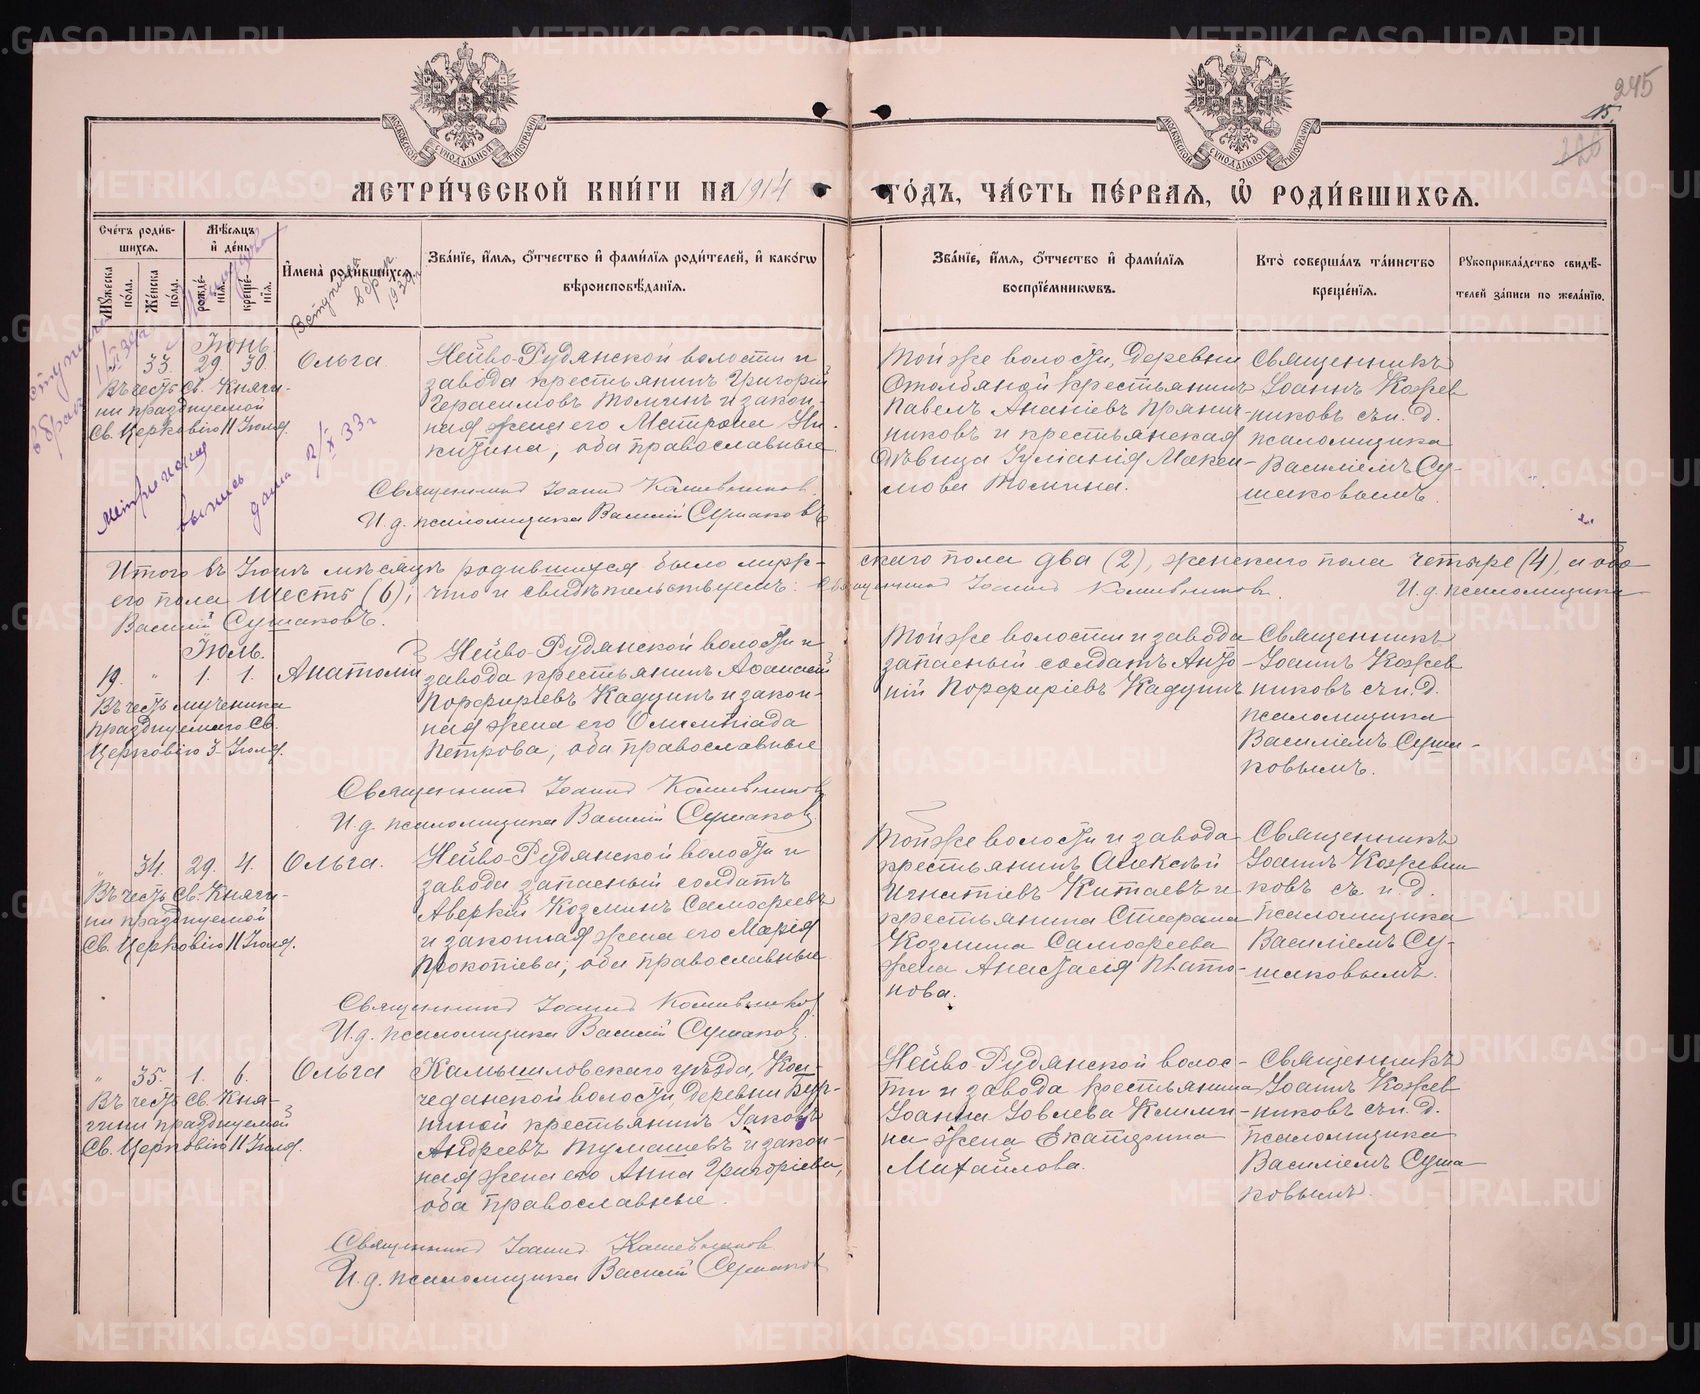 МЕТРИ́ЧЕСКОЙ КНИ́ГИ НА 1914 ГО́ДЪ, ЧА́СТЬ ПЕ́РВАЯ, Ѡ҆ РОДИ́ВШИХСЯ.
245
15.
226
МОСКОВСКОЙ СѴНОДАЛЬНОЙ ТИПОГРАФИИ
МОСКОВСКОЙ СѴНОДАЛЬНОЙ ТИПОГРАФИИ
Сче́тъ роди́вшихся.
Мꙋ́жеска по́ла.
Же́нска по́ла.
Мѣ́сяцъ и҆ де́нь
рожде́нїѧ.
креще́нїѧ.
И҆мена̀ роди́вшихсѧ.
Зва́нїе, и҆́мѧ, ѻ҆́тчество и҆ фами́лїѧ роди́телей, и҆ како́гѡ
вѣроисповѣ́данїѧ.
Зва́нїе, и҆́мѧ, ѻ҆́тчество и҆ фами́лїѧ
воспрїе́мникѡвъ.
Кто̀ соверша́лъ та́инство
креще́нїѧ.
Рꙋкоприкла́дство свидѣ́-
телей за́писи по жела́нїю.
Вступила
в брак
Метрическая
выпись
дана 2/IX 33 г
Июнь
33. 29. 30. Ольга.
Въ честь Св. Княги-
ни празднуемой
Св. Церковію 11 Июля.
Нейво-Рудянской волости и
завода крестьянинъ Григорій
Герасимовъ Томинъ и закон-
ная жена его Матрона Ни-
китина, оба православные
Священникъ Іоаннъ Кожевниковъ.
И. д. псаломщика Василій Сушаковъ
Той же волости, деревни
крестьянинъ
Павелъ Ананіевъ Прянич-
никовъ и крестьянская
дѣвица Іуліанія Макси-
мова Томина.
Священникъ
Іоаннъ Кожев
никовъ съ и. д.
псаломщика
Василіемъ Су-
шаковымъ.
Итого въ Іюнѣ мѣсяцѣ родившихся было муж-
скаго пола два (2), женскаго пола четыре (4), а обо
его пола шесть (6); что и свидѣтельствуемъ: Священникъ Іоаннъ Кожевниковъ. И. д. псаломщика
Василій Сушаковъ.
Июль.
19. „ 1. 1. Анатолій
Въ честь мученика
празднуемаго Св.
Церковію 3 Июля.
Нейво-Рудянской волости и
завода крестьянинъ Аѳанасій
Порфиріевъ Кадцинъ и закон-
ная жена его Олимпіада
Петрова, оба православные
Священникъ Іоаннъ Кожевниковъ
И. д. псаломщика Василій Сушаковъ
Той же волости и завода
запасный солдатъ Анто-
ній Порфиріевъ Кадцинъ
Священникъ
Іоаннъ Кожев
никовъ съ и. д.
псаломщика
Василіемъ Суша-
ковымъ.
„ 34. 29. 4. Ольга.
Въ честь Св. Княги-
ни празднуемой
Св. Церковію 11 Июля.
Нейво-Рудянской волости и
завода запасный солдатъ
Аверкій Козминъ Самофеевъ
и законная жена его Марія
Прокопіева; оба православные
Священникъ Іоаннъ Кожевниковъ
И. д. псаломщика Василій Сушаковъ.
Той же волости и завода
крестьянинъ Алексѣй
Игнатіевъ Китаевъ и
крестьянина Стефана
Козмина Самофеева
жена Анастасія Плато-
нова.
Священникъ
Іоаннъ Кожевни
ковъ съ и. д.
псаломщика
Василіемъ Су-
шаковымъ.
„ 35. 1. 6. Ольга
Въ честь Св. Кня-
гини празднуемой
Св. Церковію 11 Июля.
Камышловскаго уѣзда, Кол-
чеданской волости, деревни
крестьянинъ Іаковъ
Андреевъ Тумашевъ и закон-
ная жена его Анна Григоріева,
оба православные.
Священникъ Іоаннъ Кожевниковъ
И. д. псаломщика Василій Сушаковъ
Нейво-Рудянской волос-
ти и завода крестьянина
Іоанна Іовлева Калин-
на жена Екатерина
Михайлова.
Священникъ
Іоаннъ Кожев
никовъ съ и. д.
псаломщика
Василіемъ Суша
ковымъ.
METRIKI.GASO-URAL.RU